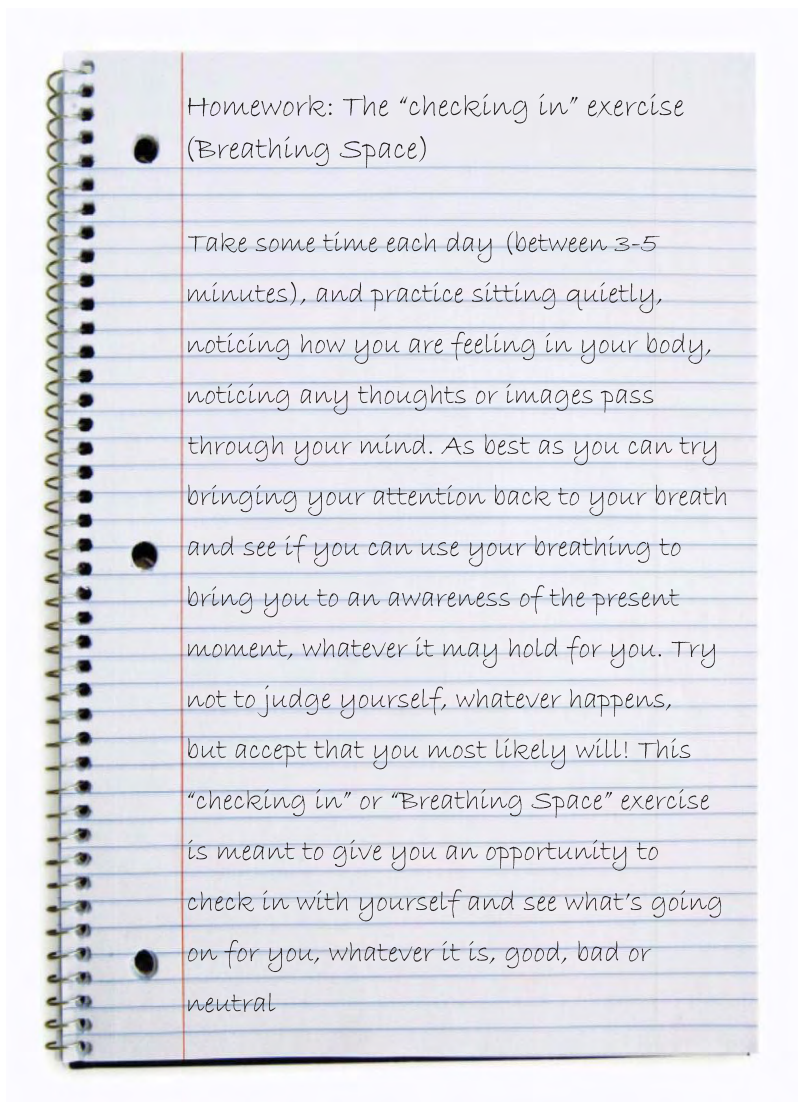 Homework: The “checking in” exercise
(Breathing Space)
Take some time each day (between 3-5
minutes), and practice sitting quietly,
noticing how you are feeling in your body,
noticing any thoughts or images pass
through your mind. As best as you can try
bringing your attention back to your breath
and see if you can use your breathing to
bring you to an awareness of the present
moment, whatever it may hold for you. Try
not to judge yourself, whatever happens,
but accept that you most likely will! This
“checking in” or “Breathing Space” exercise
is meant to give you an opportunity to
check in with yourself and see what’s going
on for you, whatever it is, good, bad or
neutral